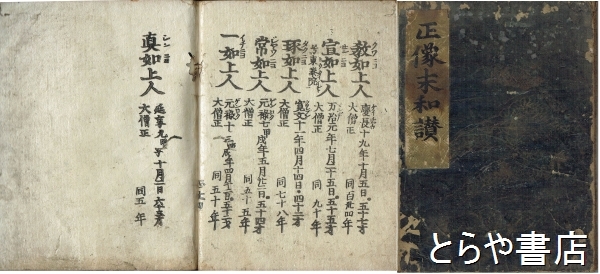 正像末和讃
教如上人
慶長十九年十月五日。五十七才
大僧正
宣如上人
万治元年七月二十五日。五十五才
大僧正
同九十年
琢如上人
寛文十一年四月十四日。四十七才
大僧正
同七十八年
常如上人
元禄七甲戌年五月廿二日。五十四才
大僧正
同五十五年
一如上人
元禄十三
大僧正
同五十年
真如上人
延享九
十月二日
大僧正
同五年
とらや書店